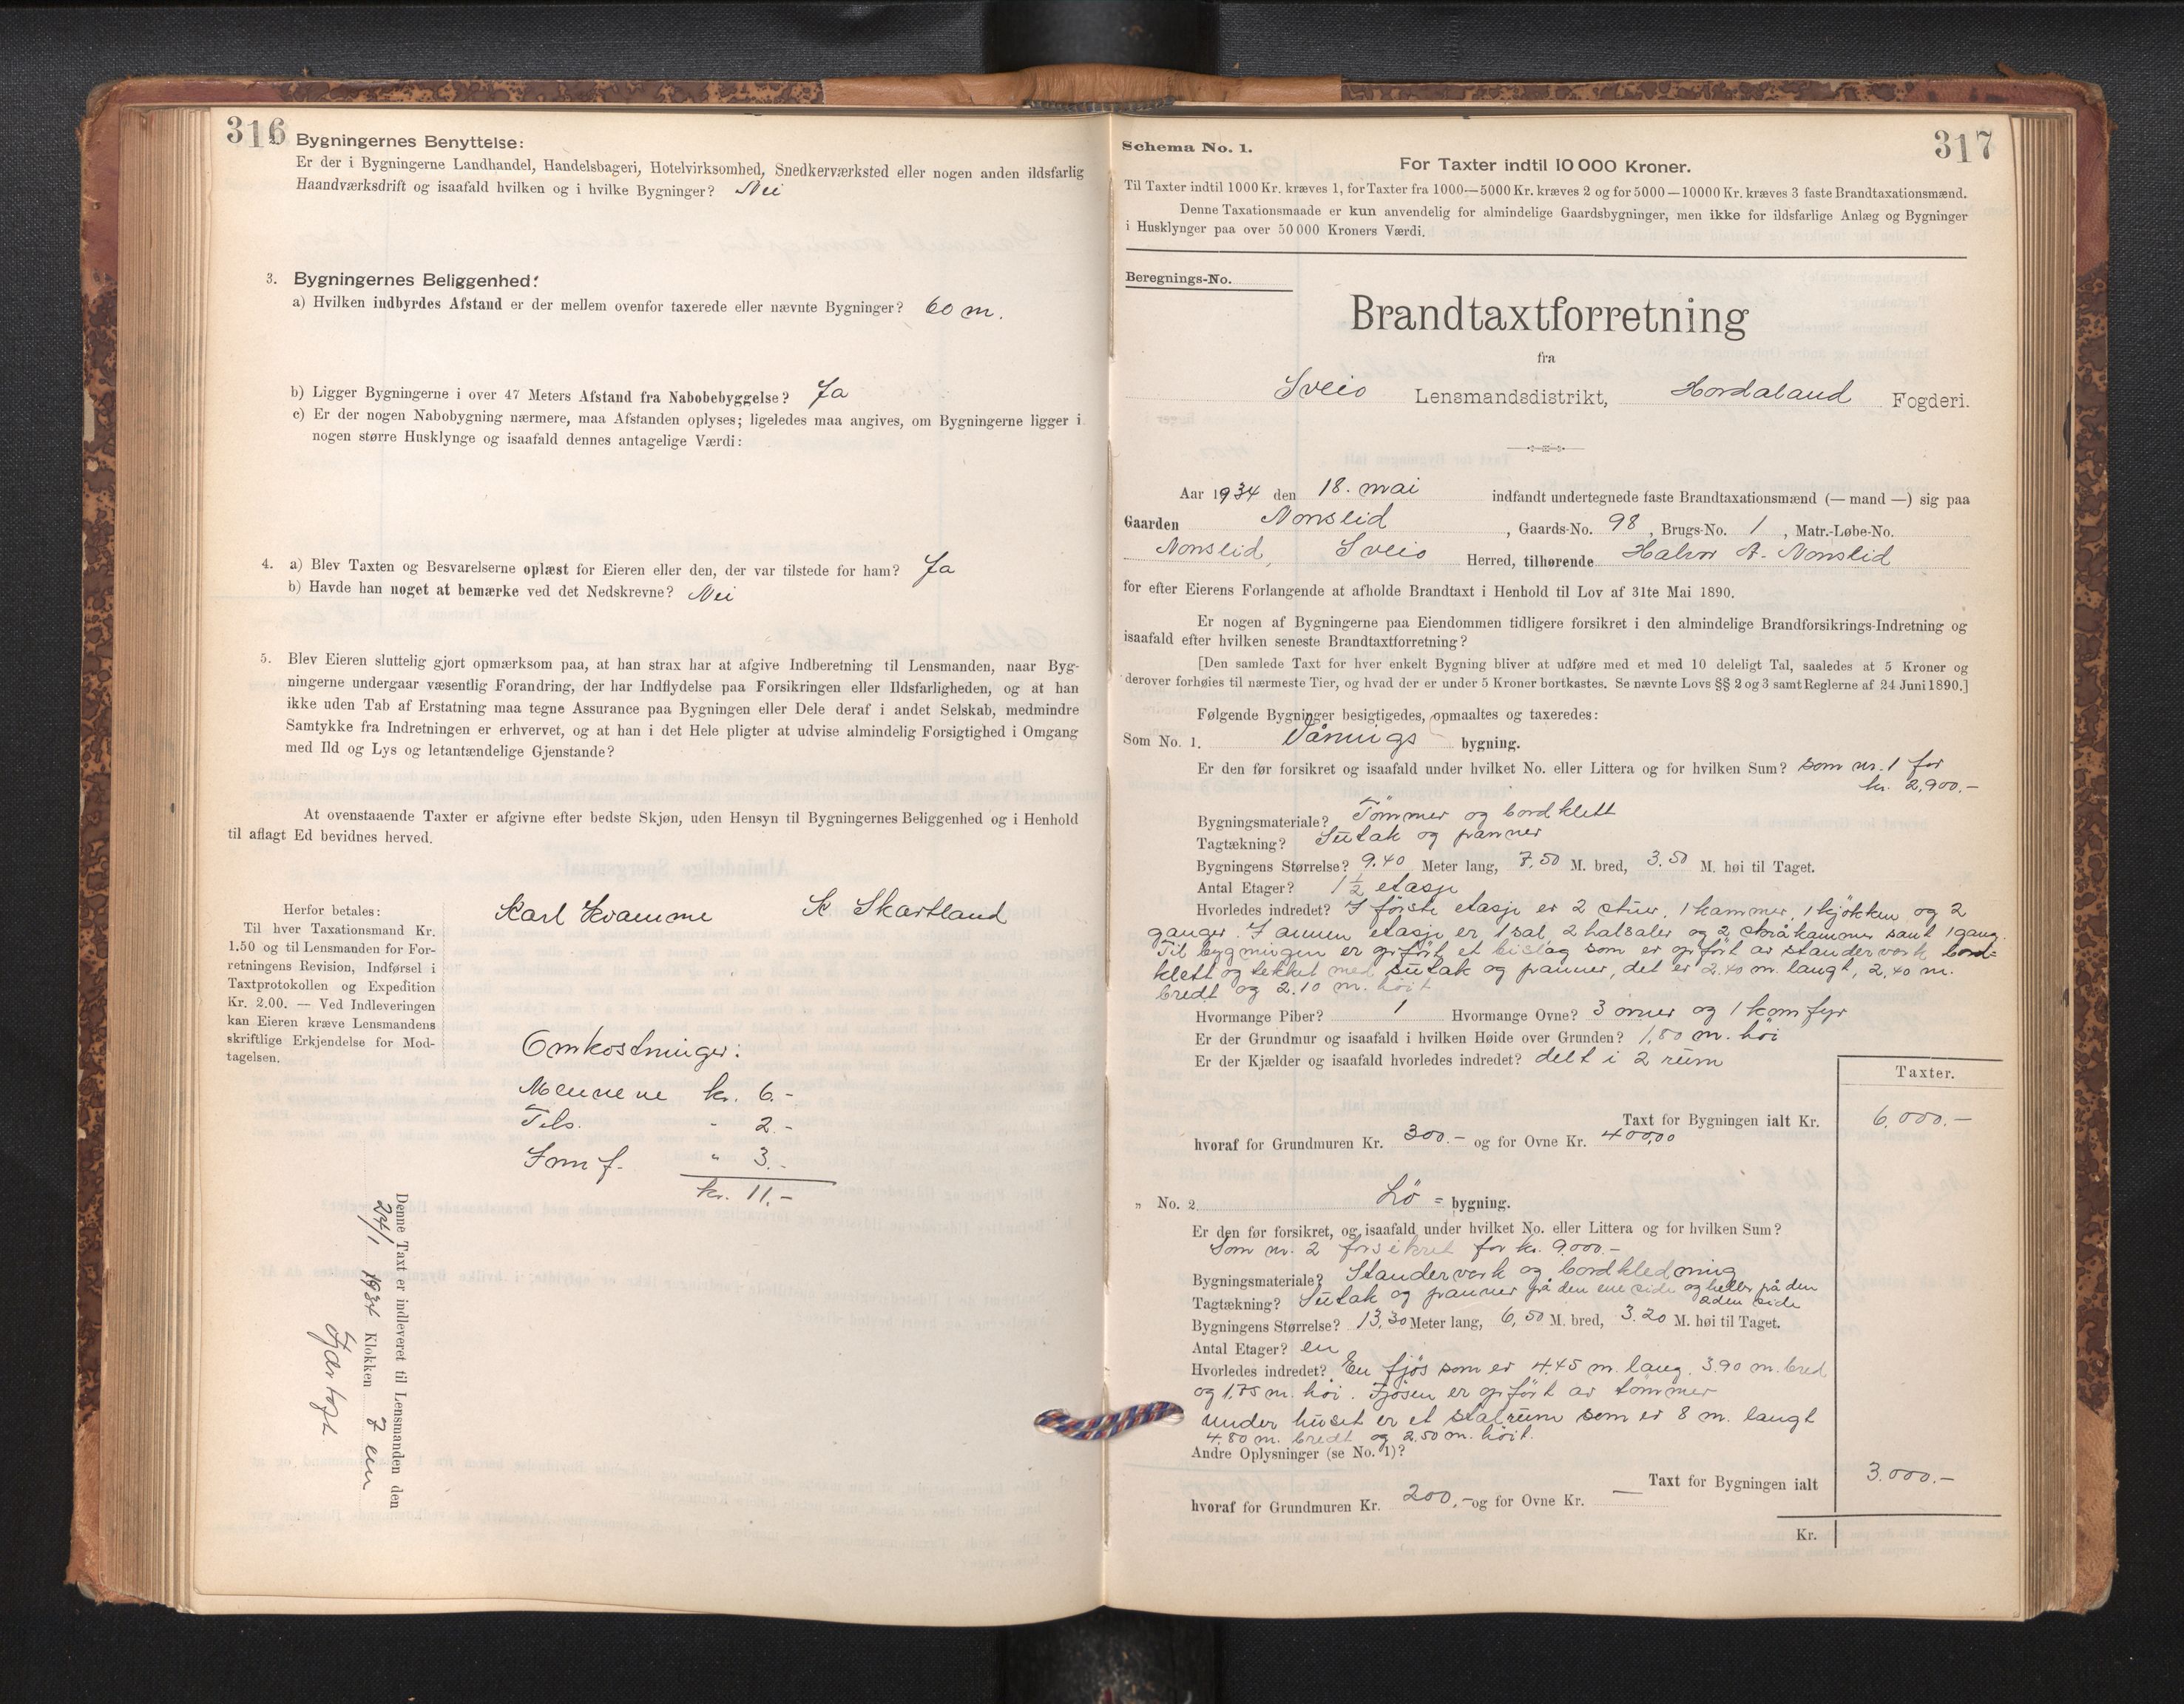 316
Bygningernes Benyttelse:
Er der i Bygningerne Landhandel, Handelsbageri, Hotelvirksomhed, Snedkerværksted eller nogen anden ildsfarlig
Haandværksdrift og isaafald hvilken og i hvilke Bygninger? Nei
3. Bygningernes Beliggenhed:
a) Hvilken indbyrdes Afstand er der mellem ovenfor taxerede eller nævnte Bygninger? 60 m.
b) Ligger Bygningerne i over 47 Meters Afstand fra Nabobebyggelse? Ja
c) Er der nogen Nabobygning nærmere, maa Afstanden oplyses; ligeledes maa angives, om Bygningerne ligger i
nogen større Husklynge og isaafald dennes antagelige Værdi:
4. a) Blev Taxten og Besvarelserne oplæst for Eieren eller den, der var tilstede for ham? Ja
b) Havde han noget at bemærke ved det Nedskrevne? Nei
5. Blev Eieren sluttelig gjort opmærksom paa, at han strax har at afgive Indberetning til Lensmanden, naar Byg-
ningerne undergaar væsentlig Forandring, der har Indflydelse paa Forsikringen eller Ildsfarligheden, og at han
ikke uden Tab af Erstatning maa tegne Assurance paa Bygningen eller Dele deraf i andet Selskab, medmindre
Samtykke fra Indretningen er erhvervet, og at han i det Hele pligter at udvise almindelig Forsigtighed i Omgang
med Ild og Lys og letantændelige Gjenstande?
At ovenstaaende Taxter er afgivne efter bedste Skjøn, uden Hensyn til Bygningernes Beliggenhed og i Henhold
til aflagt Ed bevidnes herved.
Karl Kvamme K Skartland
Herfor betales:
Til hver Taxationsmand Kr.
1.50 og til Lensmanden for For-
retningens Revision, Indførsel i
Taxtprotokollen og Expedition
Kr. 2.00. — Ved Indleveringen
kan Eieren kræve Lensmandens
skriftlige Erkjendelse for Mod-
tagelsen.
Omkostninger:
Mennene kr. 6.-
Tils. " 2.-
Innf. " 3.-
kr. 11.-
Denne Taxt er indleveret til Lensmanden den
24/1 1934 Klokken 7 em
317
Schema No. 1.
For Taxter indtil 10 000 Kroner.
Til Taxter indtil 1000 Kr. kræves 1, for Taxter fra 1000—5000 Kr. kræves 2 og for 5000—10000 Kr. kræves 3 faste Brandtaxationsmænd.
Denne Taxationsmaade er kun anvendelig for almindelige Gaardsbygninger, men ikke for ildsfarlige Anlæg og Bygninger
i Husklynger paa over 50 000 Kroners Værdi.
Beregnings-No.
Brandtaxtforretning
fra
Sveio Lensmandsdistrikt, Hordaland Fogderi.
Aar 1934 den 18. mai indfandt undertegnede faste Brandtaxationsmænd (— mand —) sig paa
Gaarden Nonslid, Gaards-No. 98, Brugs-No. 1, Matr.-Løbe-No.
Nonslid, Sveio Herred, tilhørende Halvor A. Nonslid
for efter Eierens Forlangende at afholde Brandtaxt i Henhold til Lov af 31te Mai 1890.
Er nogen af Bygningerne paa Eiendommen tidligere forsikret i den almindelige Brandforsikrings-Indretning og
isaafald efter hvilken seneste Brandtaxtforretning?
[Den samlede Taxt for hver enkelt Bygning bliver at udføre med et med 10 deleligt Tal, saaledes at 5 Kroner og
derover forhøies til nærmeste Tier, og hvad der er under 5 Kroner bortkastes. Se nævnte Lovs §§ 2 og 3 samt Reglerne af 24 Juni 1890.]
Følgende Bygninger besigtigedes, opmaaltes og taxeredes:
Som No. 1. Vånings bygning.
Er den før forsikret og isaafald under hvilket No. eller Littera og for hvilken Sum? som nr. 1 for
kr. 2,900.-
Bygningsmateriale? Tømmer og bordklett
Tagtækning? Sutak og panner
Bygningens Størrelse? 9.40 Meter lang, 7,50 M. bred, 3.50 M. høi til Taget.
Antal Etager? 1 1/2 etasje
Hvorledes indredet? I første etasje er 2 stuer, 1 kammer, 1 kjøkken og 2
ganger. I annen etasje er 1 sal, 2 halsaler og 2 skråkammer samt 1 gang.
Til bygningen er opført et bislag som er opført av standerverk bord-
klett og tekket med sutak og panner, det er 2.40 m. langt, 2,40 m.
bredt og 2.10 m. høit
Hvormange Piber? 1 Hvormange Ovne? 3 ovner og 1 komfyr
Er der Grundmur og isaafald i hvilken Høide over Grunden? 1,80 m. høi
Er der Kjælder og isaafald hvorledes indredet? delt i 2 rum
Taxter.
Taxt for Bygningen ialt Kr. 6,000.-
hvoraf for Grundmuren Kr. 300.- og for Ovne Kr. 400,00
" No. 2 Lø - bygning.
Er den før forsikret, og isaafald under hvilket No. eller Littera og for hvilken Sum?
Som nr. 2 forsikret for kr. 9.000.-
Bygningsmateriale? Standerverk og bordkledning
Tagtækning? Sutak og panner på den ene side og heller på den
2den side
Bygningens Størrelse? 13,30 Meter lang, 6,50 M. bred, 3.20 M. høi til Taget.
Antal Etager? en
Hvorledes indredet? En fjøs som er 4.45 m. lang, 3.90 m. bred
og 1.75 m. høi. Fjøsen er opført av tømmer
under huset er et stalrum som er 8 m. langt
4.80 m. bredt og 2,50 m. høit.
Andre Oplysninger (se No. 1)?
Taxt for Bygningen ialt 3.000.-
hvoraf for Grundmuren Kr. 200,- og for Ovne Kr. —
Kr.